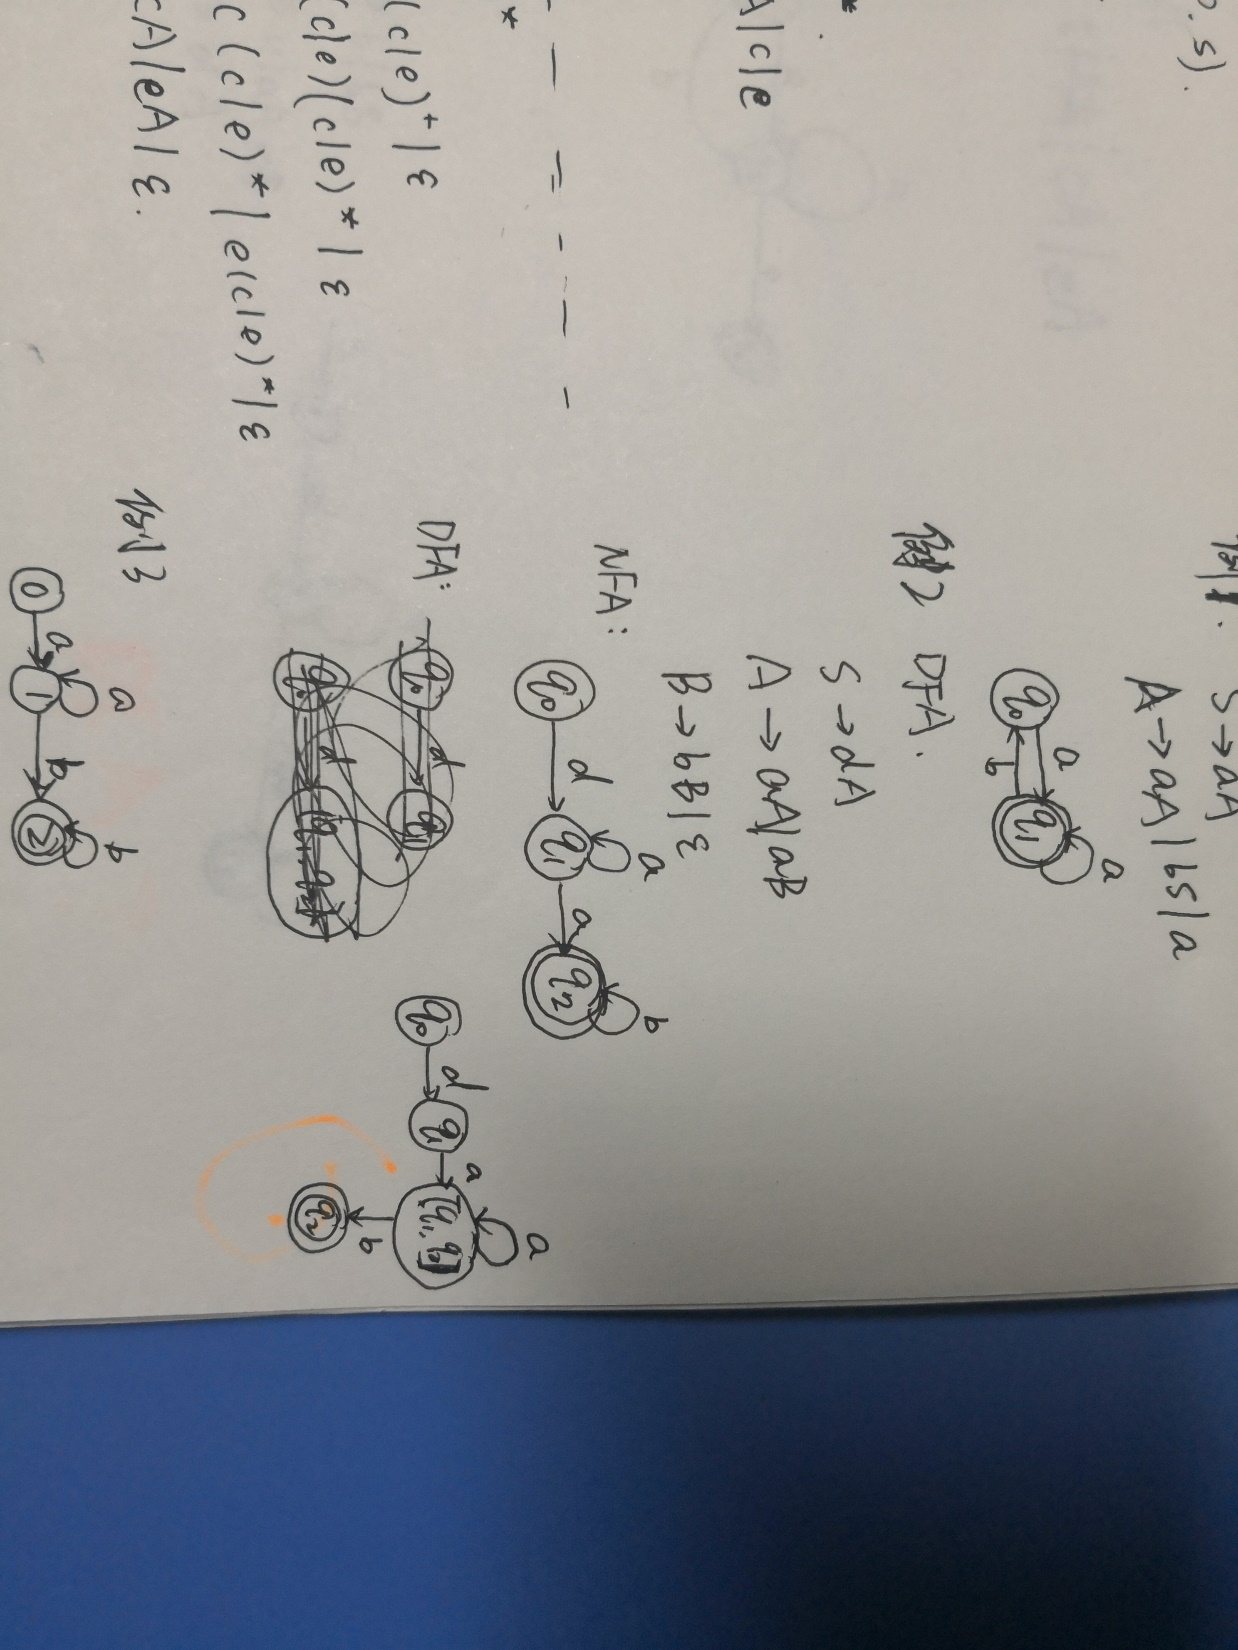 p.s).
*
A|c|e
*
(c|e)⁺|ε
(c|e)(c|e)*|ε
c(c|e)*|e(c|e)*|ε
cA|eA|ε.
例1. S→aA
A→aA|bS|a
q₀ a b q₁ a
例2 DFA.
S→dA
A→aA|aB
B→bB|ε
NFA:
q₀ d q₁ a a q₂ b
DFA:
q₀ d q₁
q₀ d q₁ a [q₁,q₂] a
b q₂
例3
0 a 1 a b 2 b